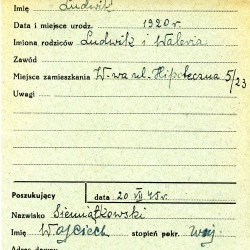 Imię Ludwik
Data i miejsce urodz. 1920 r.
Imiona rodziców Ludwik i Waleria
Zawód
Miejsce zamieszkania W-wa ul. Hipoteczna 5/23
Uwagi
Poszukujący data 20 VII 45 r.
Nazwisko Siemiątkowski
Imię Wojciech stopień pokr. wuj